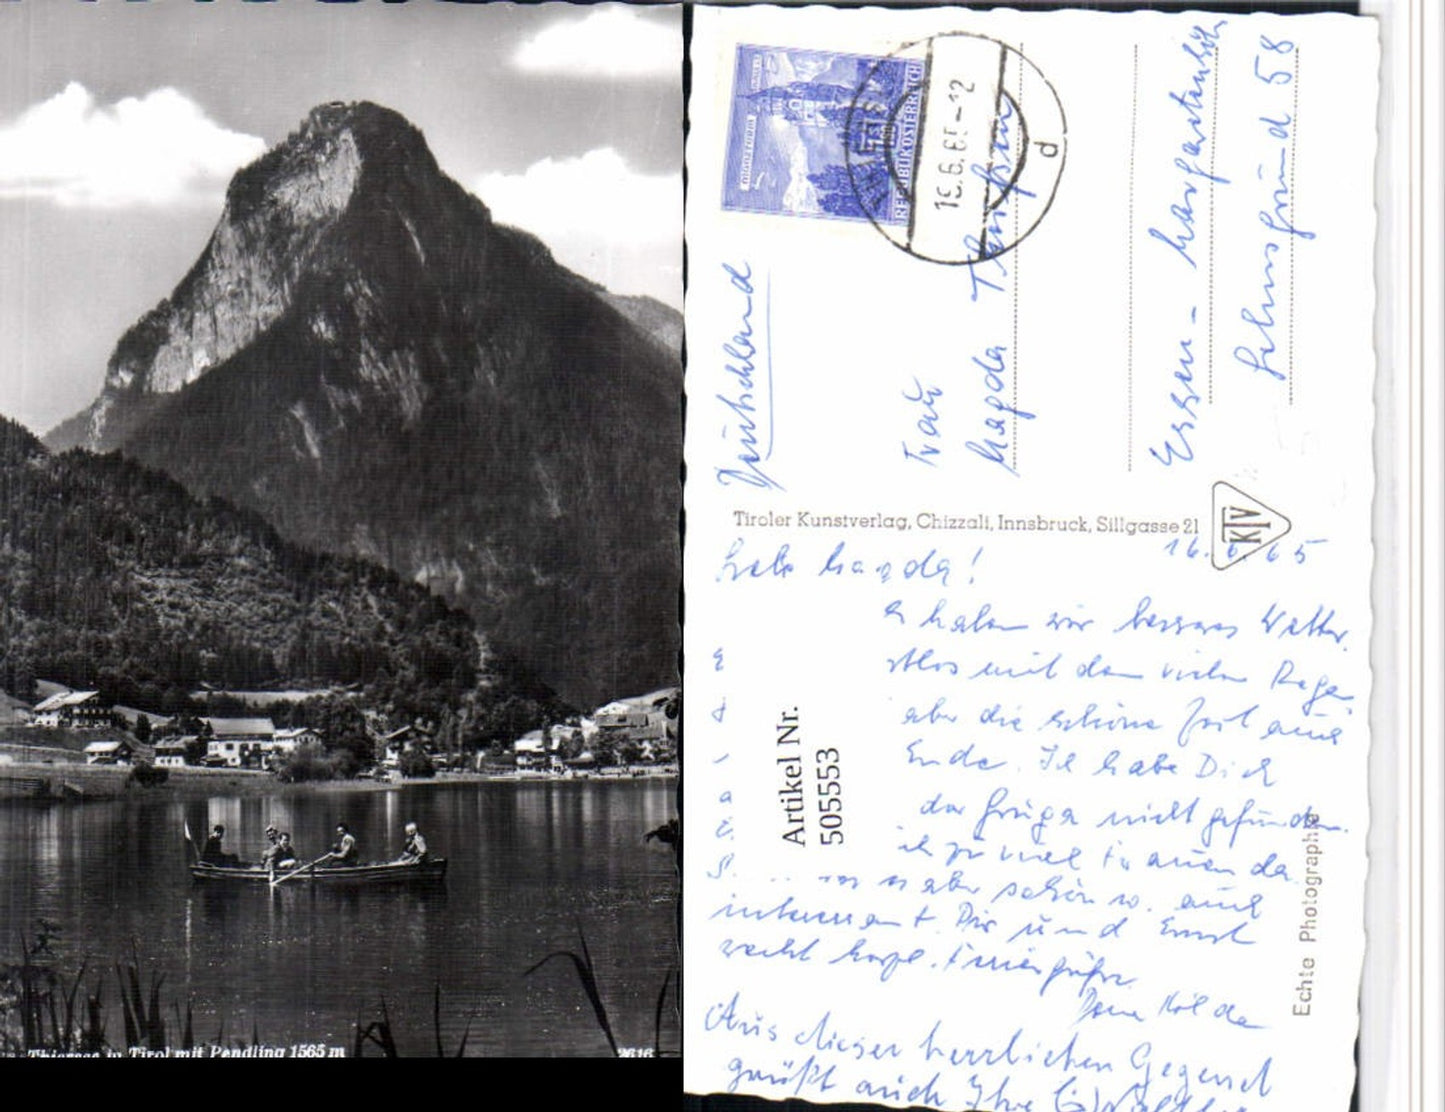 Thiersee in Tirol mit Pendling 1565 m
2616
REPUBLIK ÖSTERREICH
16.6.65-12
d
Deutschland
Frau
Magda
Essen - Margarethenhöhe
Lehnsgrund 58
Tiroler Kunstverlag, Chizzali, Innsbruck, Sillgasse 21
KTV
16. 6. 65
Liebe Magda!
haben wir besseres Wetter.
mit dem vielen Rege
aber die schöne Zeit auch
Ende. Ich habe Dich
der Gruga nicht gefunden.
ich zu viel
es aber schön u. auch
interessant. Dir und Ernst
recht herzl. Feriengrüße
Deine Hilde
Aus dieser herrlichen Gegend
grüßt auch Ihre
Artikel Nr.
505553
Echte Photographie